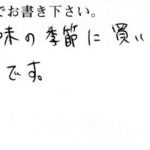 でお書き下さい。
味の季節に買い
です。